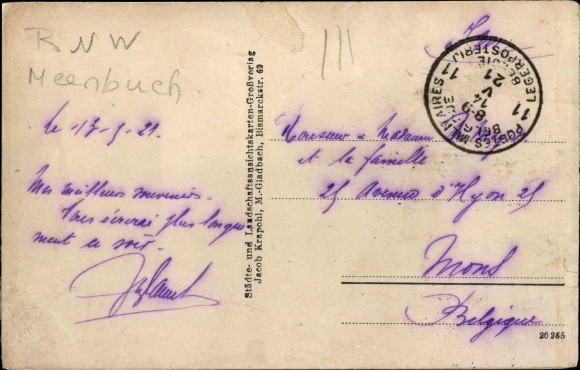 RNW
Meerbuch
le 13-5-21.
Mes meilleurs souvenirs.
Vous écrirai plus longue
ment ce soir.
Städte- und Landschaftsansichtskarten-Großverlag
Jacob Krapohl, M.-Gladbach, Bismarckstr. 69
POSTES MILITAIRES
BELGIQUE
11 11
8-9
14
V
21
BELGIË
LEGERPOSTERIJ
Monsieur & Madame
et la famille
25 Avenue d'Hyon 25
Mons
Belgique
20 265